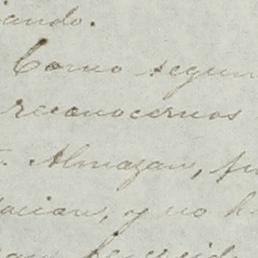 iando.
Como segun
reconocernos
Almazan, fu
acion, y no h